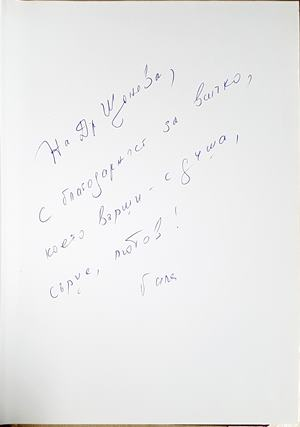 На Др Цонева,
с благодарност за всичко,
което върши - с душа,
сърце, любов!